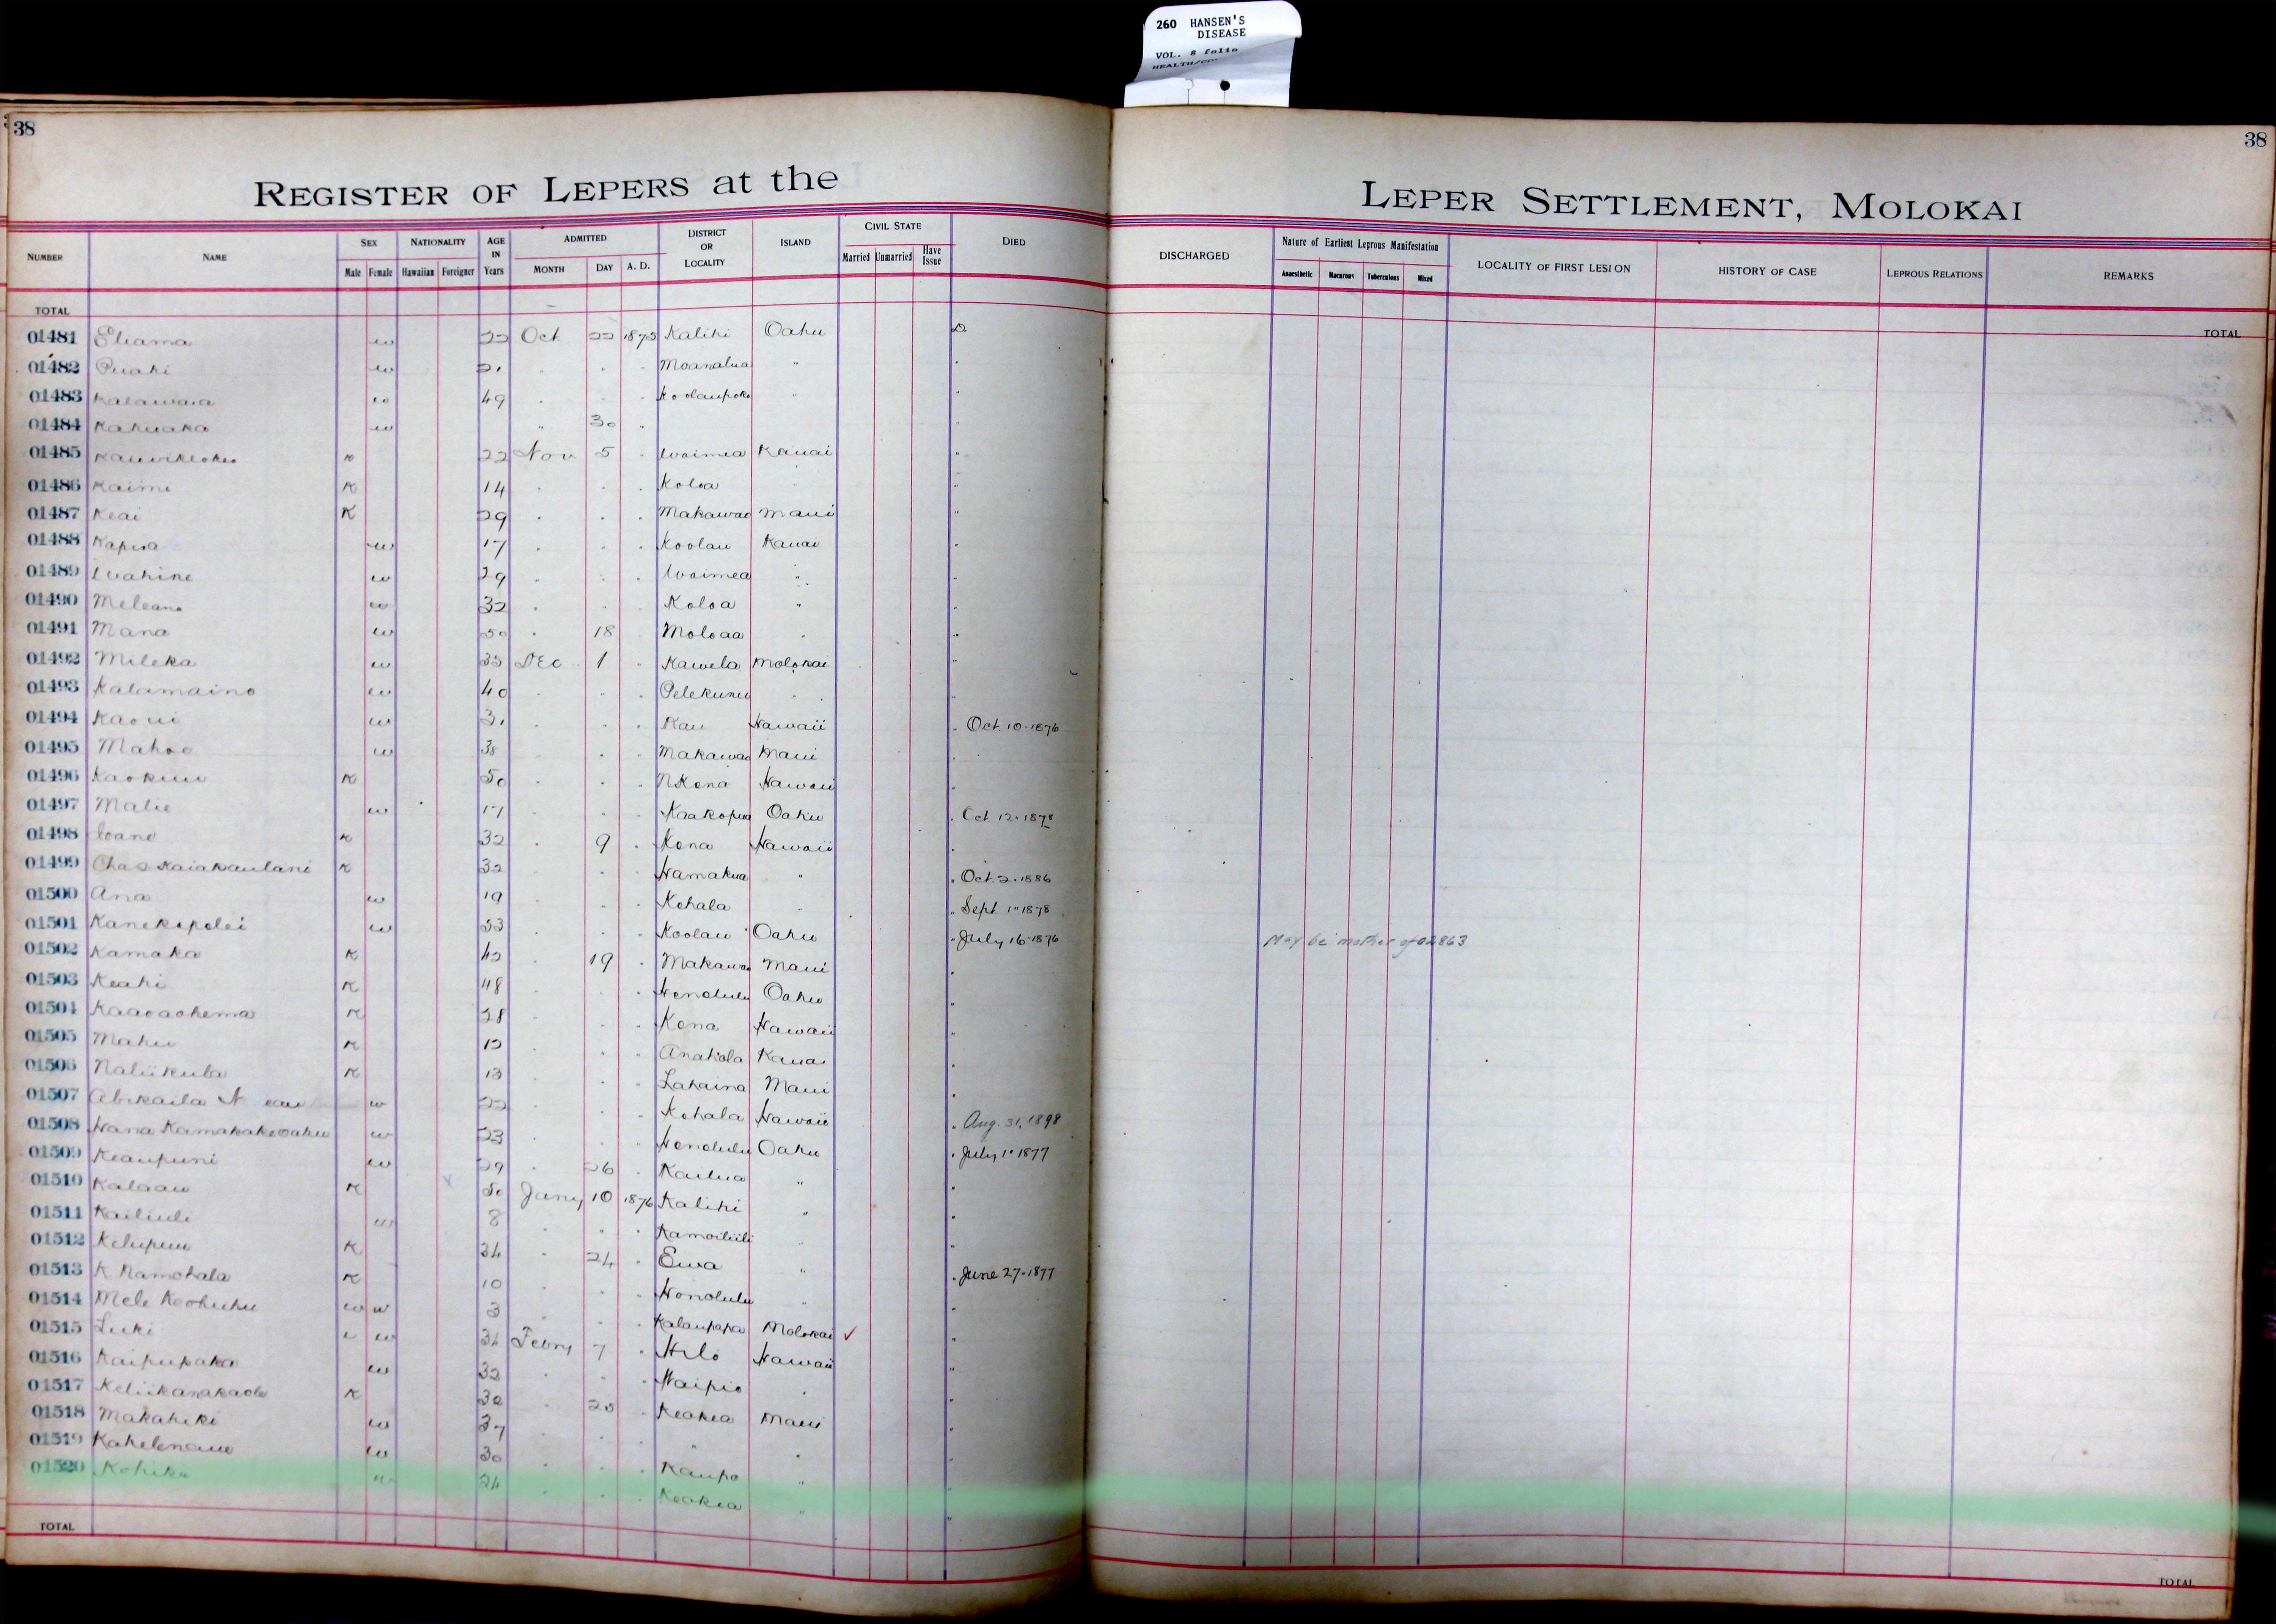 260 HANSEN'S
DISEASE
VOL. 8 folio
38
38
REGISTER OF LEPERS at the LEPER SETTLEMENT, MOLOKAI
NUMBER NAME SEX Male Female NATIONALITY Hawaiian Foreigner AGE IN Years ADMITTED MONTH DAY A. D. DISTRICT OR LOCALITY ISLAND CIVIL STATE Married Unmarried Have Issue DIED DISCHARGED Nature of Earliest Leprous Manifestation Anaesthetic Macurous Tuberculous Mixed LOCALITY OF FIRST LESION HISTORY OF CASE LEPROUS RELATIONS REMARKS
TOTAL TOTAL
01481 Eliama w 22 Oct 22 1875 Kalihi Oahu D
01482 Puahi w 21 " " " Moanalua "
01483 Kalawaia w 49 " " " Koolaupoko "
01484 Kahuaka w " 30 "
01485 K 22 Nov 5 " Waimea Kauai "
01486 Kaimi K 14 " " " Koloa "
01487 Keai K 29 " " " Makawao Maui "
01488 Kapua w 17 " " " Koolau Kauai "
01489 Wahine w 29 " " " Waimea " "
01490 Meleana w 32 " " " Koloa " "
01491 Mana w 50 " 18 Moloaa " "
01492 Mileka w 35 Dec 1 " Kawela Molokai "
01493 Kalamaino w 40 " " " Pelekunu " "
01494 Kaoui w 31 " " " Kau Hawaii " Oct. 10-1876
01495 Mahoe w 38 " " Makawao Maui "
01496 Kaokuu K 50 " " " N Kona Hawaii "
01497 Malie w 17 " " Kaakopua Oahu " Oct 12-1878
01498 Ioane K 32 " 9 " Kona Hawaii "
01499 Chas Kaiakaulani K 32 " " " Hamakua " " Oct. 2-1886
01500 Ana w 19 " " " Kohala " " Sept 1-1878
01501 Kanekapolei w 53 " " " Koolau Oahu " July 16-1876 May be mother of 02863
01502 Kamaka K 42 " 19 " Makawao Maui "
01503 Keahi K 48 " " " Honolulu Oahu "
01504 Kaaoaohema K 28 " " " Kona Hawaii "
01505 Mahu K 12 " " " Anahola Kauai "
01506 Naliikula K 13 " " " Lahaina Maui "
01507 Abikaila N w 22 " " " Kohala Hawaii " Aug. 31, 1898
01508 Hana Kamakakeoahu w 23 " " " Honolulu Oahu " July 1-1877
01509 Keaupuni w 29 " 26 " Kailua " "
01510 Kalaau K 50 Jany 10 1876 Kalihi " "
01511 Kailiuli w 8 " " " Kamoiliili " "
01512 Kelupuu K 34 " 24 " Ewa " " June 27-1877
01513 K Namohala K 10 " " " Honolulu " "
01514 Mele Keohuhu w w 3 " " " Kalaupapa Molokai ✓ "
01515 Luki w 34 Febry 7 " Hilo Hawaii "
01516 Kaipupaka w 32 " " " Waipio " "
01517 Keliikanakaole K 30 " 25 " Keokea Maui "
01518 Makahiki w 37 " " " " "
01519 Kahelenaue w 30 " " " Kaupo " "
01520 Kohiku w 24 " " " Keokea " "
TOTAL TOTAL